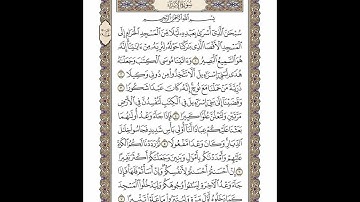 سُورَةُ الإِسْرَاءِ
بِسْمِ اللَّهِ الرَّحْمَٰنِ الرَّحِيمِ
سُبْحَٰنَ الَّذِي أَسْرَىٰ بِعَبْدِهِ لَيْلًا مِّنَ الْمَسْجِدِ الْحَرَامِ إِلَى
الْمَسْجِدِ الْأَقْصَا الَّذِي بَٰرَكْنَا حَوْلَهُ لِنُرِيَهُ مِنْ ءَايَٰتِنَا إِنَّهُ
هُوَ السَّمِيعُ الْبَصِيرُ ١ وَءَاتَيْنَا مُوسَى الْكِتَٰبَ وَجَعَلْنَٰهُ
هُدًى لِّبَنِي إِسْرَٰٓءِيلَ أَلَّا تَتَّخِذُوا مِن دُونِي وَكِيلًا ٢
ذُرِّيَّةَ مَنْ حَمَلْنَا مَعَ نُوحٍ إِنَّهُ كَانَ عَبْدًا شَكُورًا ٣
وَقَضَيْنَا إِلَىٰ بَنِي إِسْرَٰٓءِيلَ فِي الْكِتَٰبِ لَتُفْسِدُنَّ فِي الْأَرْضِ
مَرَّتَيْنِ وَلَتَعْلُنَّ عُلُوًّا كَبِيرًا ٤ فَإِذَا جَاءَ وَعْدُ أُولَىٰهُمَا
بَعَثْنَا عَلَيْكُمْ عِبَادًا لَّنَا أُولِي بَأْسٍ شَدِيدٍ فَجَاسُوا خِلَٰلَ
الدِّيَارِ وَكَانَ وَعْدًا مَّفْعُولًا ٥ ثُمَّ رَدَدْنَا لَكُمُ الْكَرَّةَ
عَلَيْهِمْ وَأَمْدَدْنَٰكُم بِأَمْوَٰلٍ وَبَنِينَ وَجَعَلْنَٰكُمْ أَكْثَرَ نَفِيرًا
٦ إِنْ أَحْسَنتُمْ أَحْسَنتُمْ لِأَنفُسِكُمْ وَإِنْ أَسَأْتُمْ فَلَهَا فَإِذَا
جَاءَ وَعْدُ الْءَاخِرَةِ لِيَسُـُٔوا وُجُوهَكُمْ وَلِيَدْخُلُوا الْمَسْجِدَ
كَمَا دَخَلُوهُ أَوَّلَ مَرَّةٍ وَلِيُتَبِّرُوا مَا عَلَوْا تَتْبِيرًا ٧